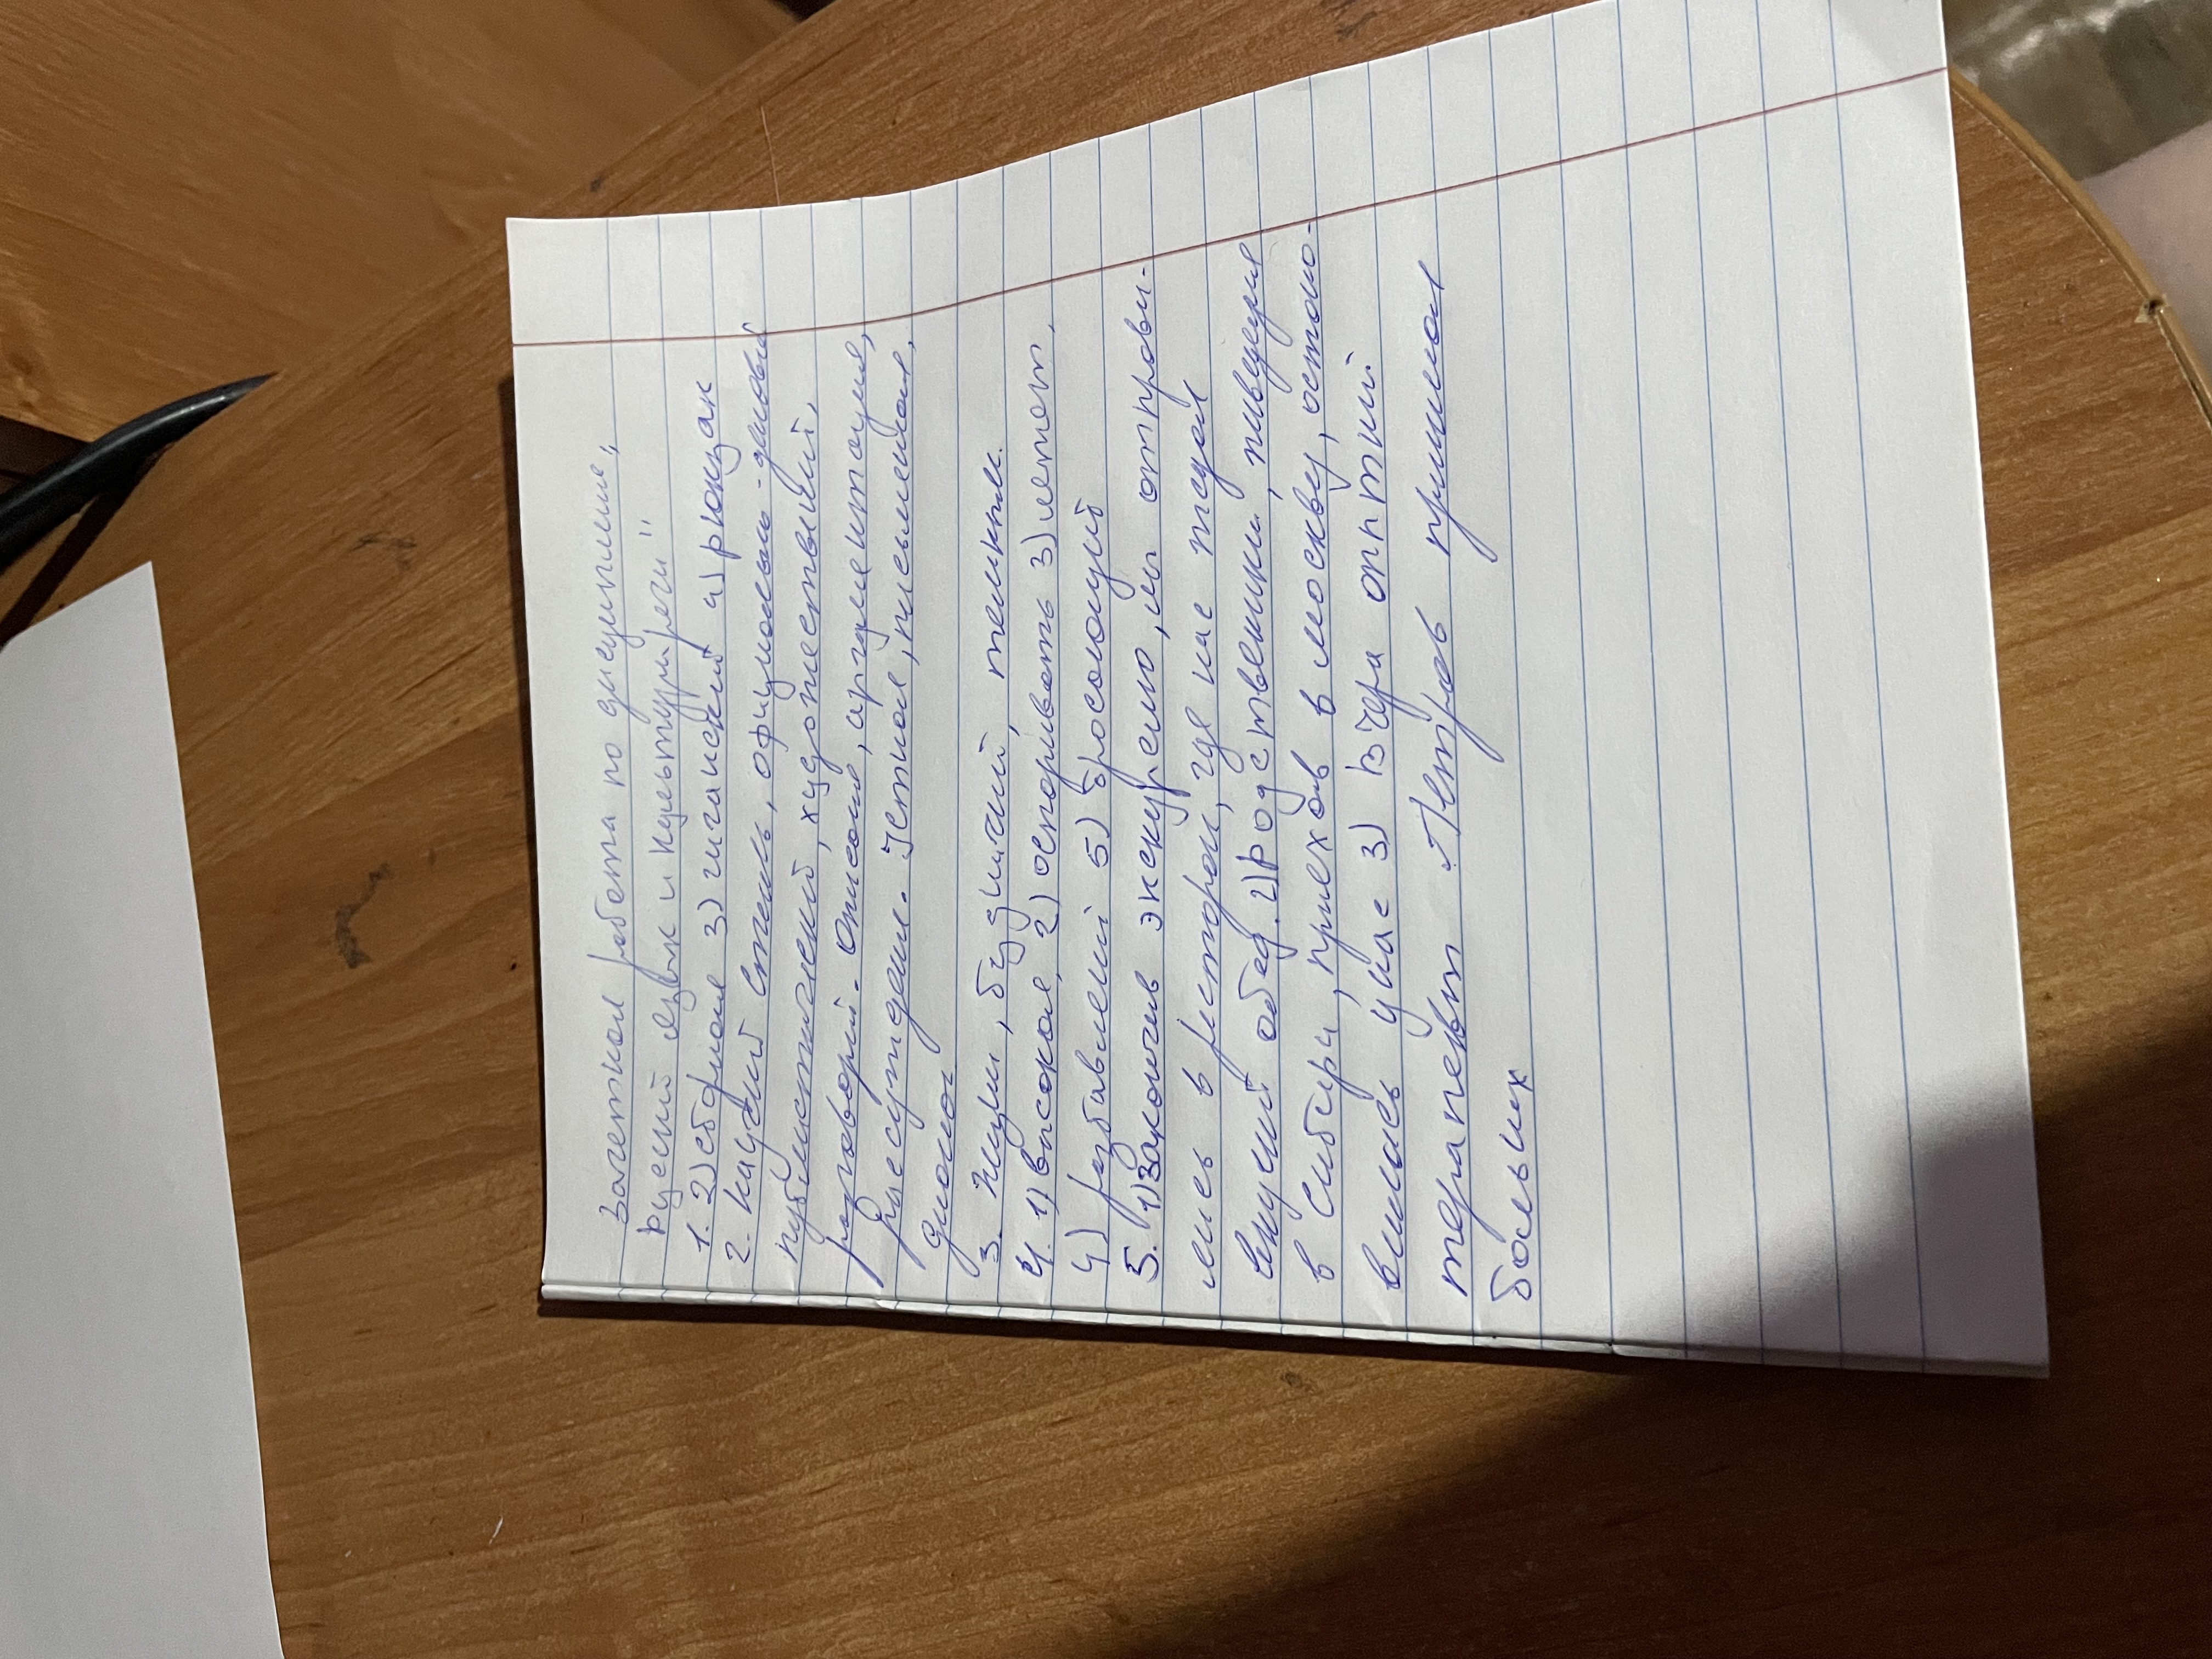 Зачетная работа по дисциплине „
Русский язык и культура речи"
1. 2) сборная 3) гигансский 4) рюкзак
2. научный стиль, официально-деловой
публицистический, художественный,
разговорный. Описание, аргументация,
рассуждение. Устная, письменная,
диалог
3. жизни, будущий, тешкть.
4. 1) высокая, 2) оспаривать 3) летет,
4) разбавлений 5) бросающий
5. 1) Закончив экскурсию, мы отправи-
лись в ресторан, где нас ждал
вкусный обед. 2) родственники, живущия
в Сибири, приехав в Москву, остано-
вились у нас 3) Вчера опытный
терапевт Петров принимал
больных